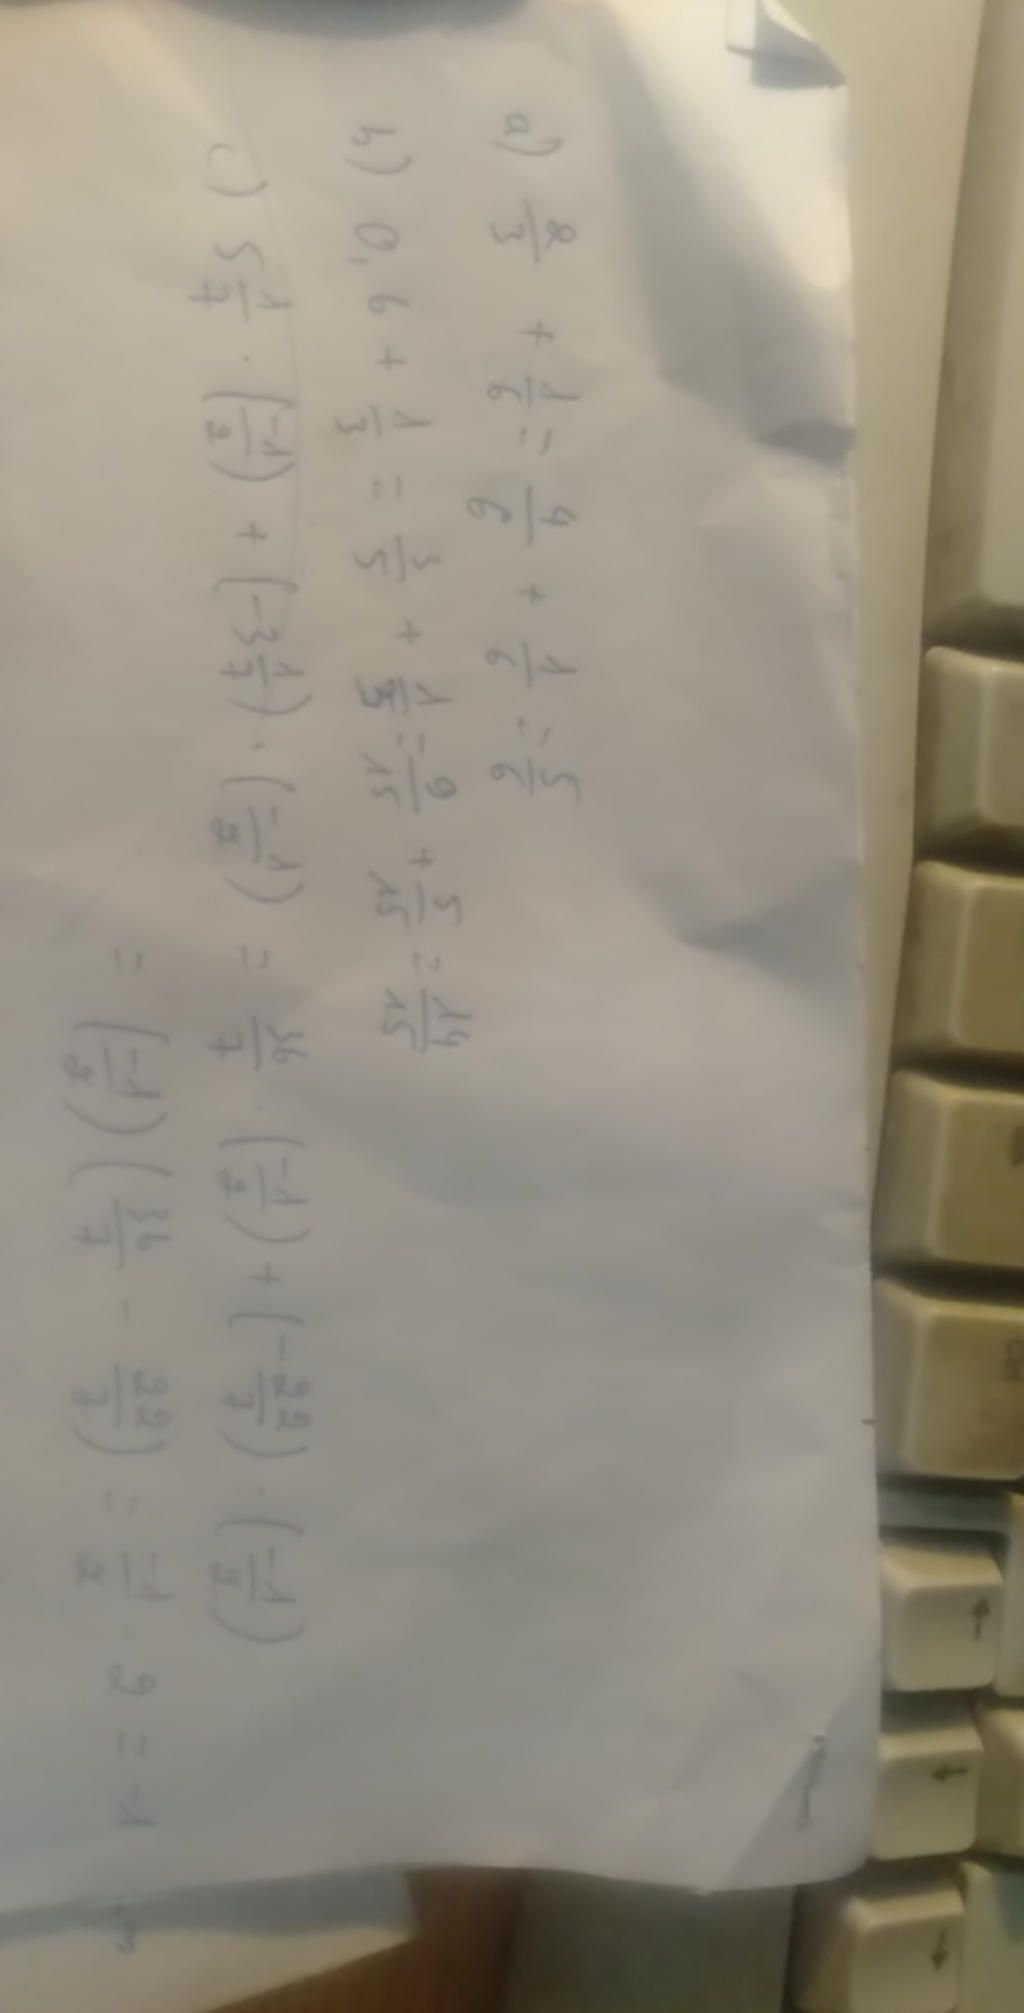 a) 2/3 + 1/6 = 4/6 + 1/6 = 5/6
b) 0,6 + 1/3 = 3/5 + 1/3 = 9/15 + 5/15 = 14/15
c) 5 1/7 · (-1/2) + (-3 1/7) · (-1/2) = 36/7 · (-1/2) + (-22/7) · (-1/2)
= (-1/2) (36/7 - 22/7) = -1/2 · 2 = -1